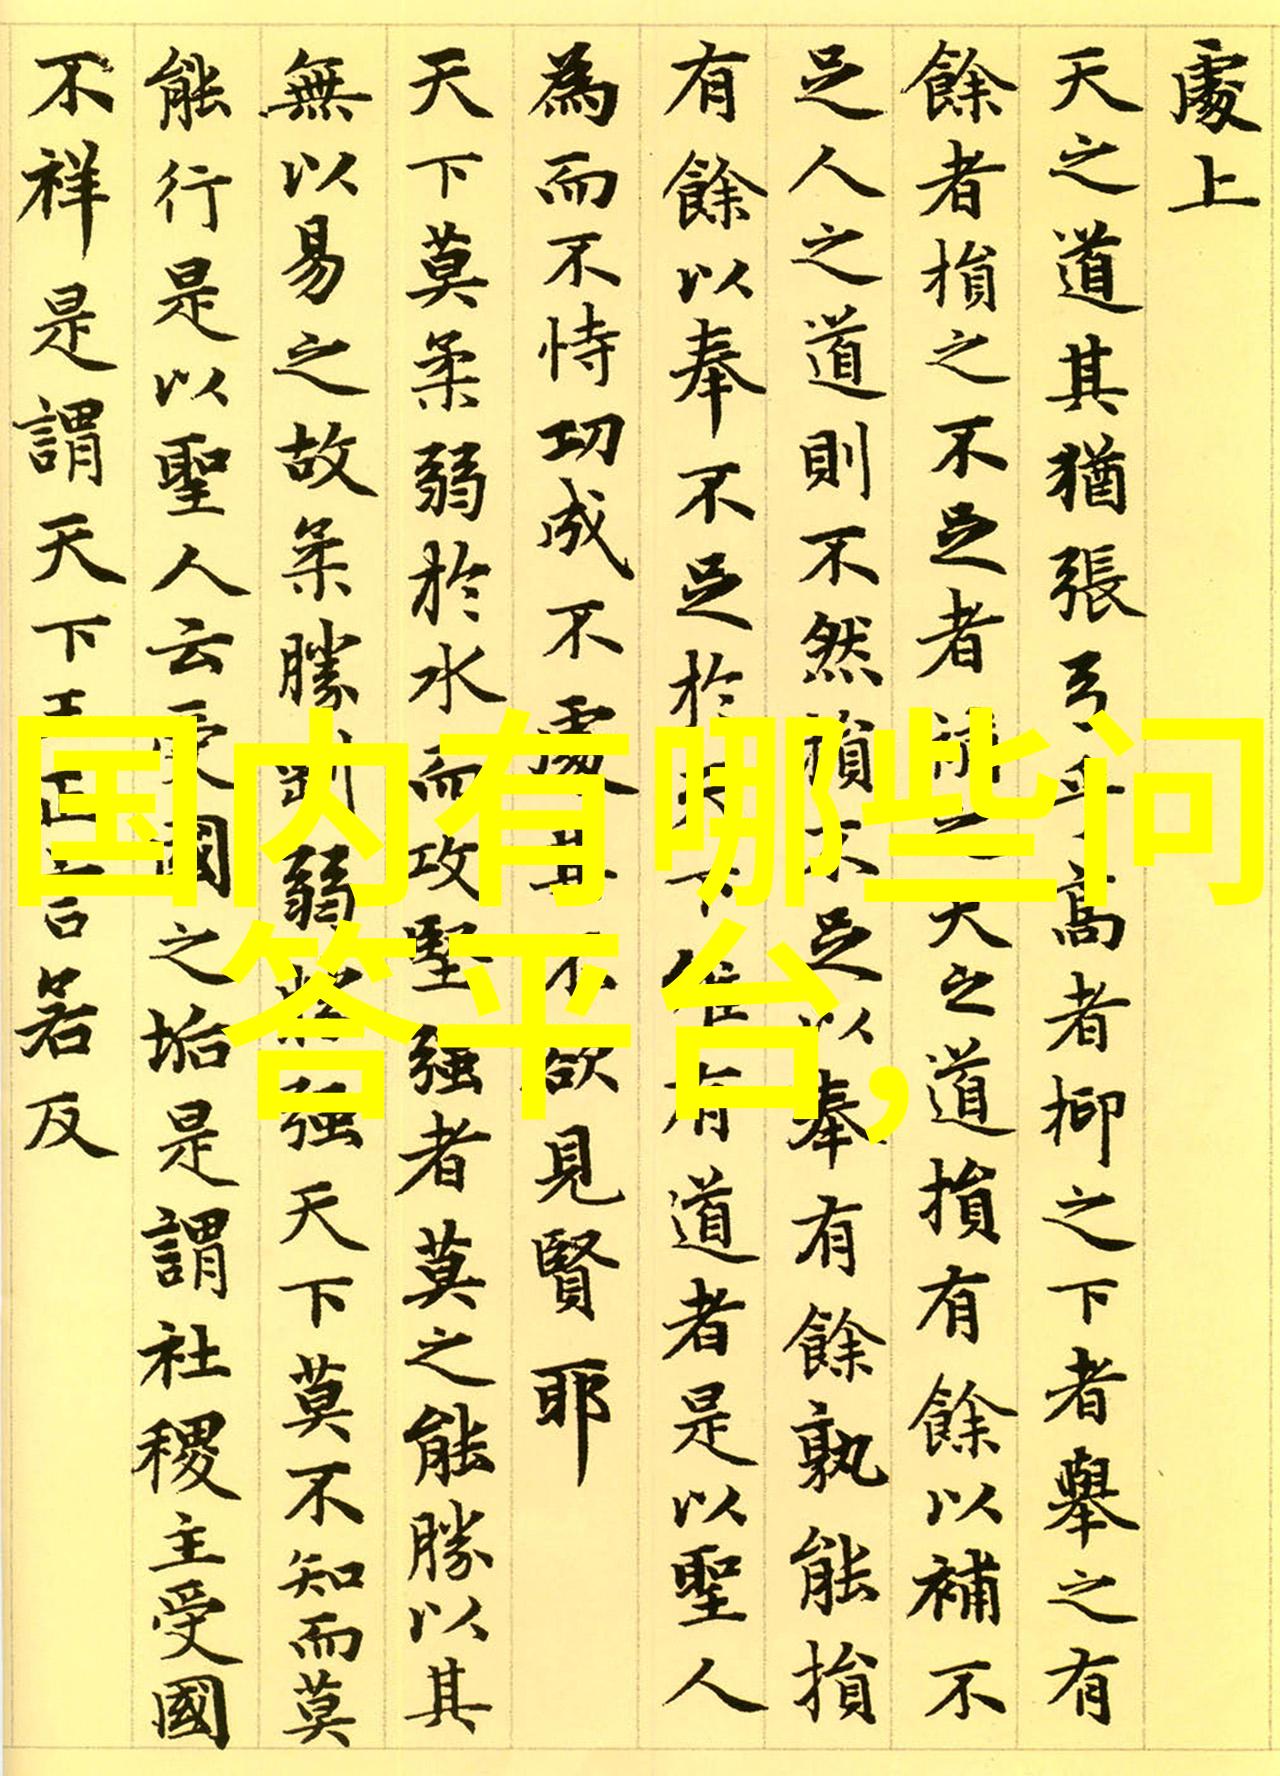 處上
天之道其猶張弓乎高者抑之下者舉之有
餘者損之不足者補之天之道損有餘以補不
足人之道則不然損不足以奉有餘孰能損
有餘以奉不足於天下唯有道者是以聖人
為而不恃功成不處其不欲見賢耶
天下莫柔弱於水而攻堅强者莫之能勝以其
無以易之故柔勝剛弱將强天下莫不知而莫
能行是以聖人云受國之垢是謂社稷主受國
不祥是謂天下王正言若反
国内有哪些问
答平台,